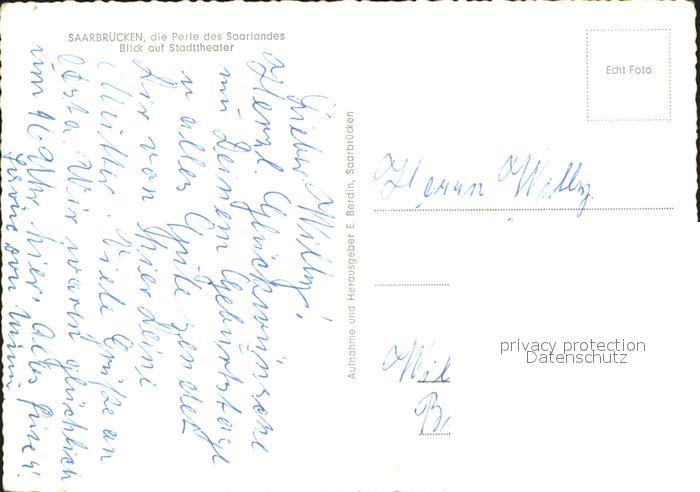 SAARBRÜCKEN, die Perle des Saarlandes
Blick auf Stadttheater
Echt Foto
Aufnahme und Herausgeber E. Berdin, Saarbrücken
Lieber Willy!
Herzl. Glückwünsche
zu Deinem Geburtstage
u alles Gute sendet
Dir von hier Deine
Mutter. Viele Grüße an
Wir waren glücklich
um 16 Uhr hier. Alles
Herrn Willy
Wil
privacy protection
Datenschutz